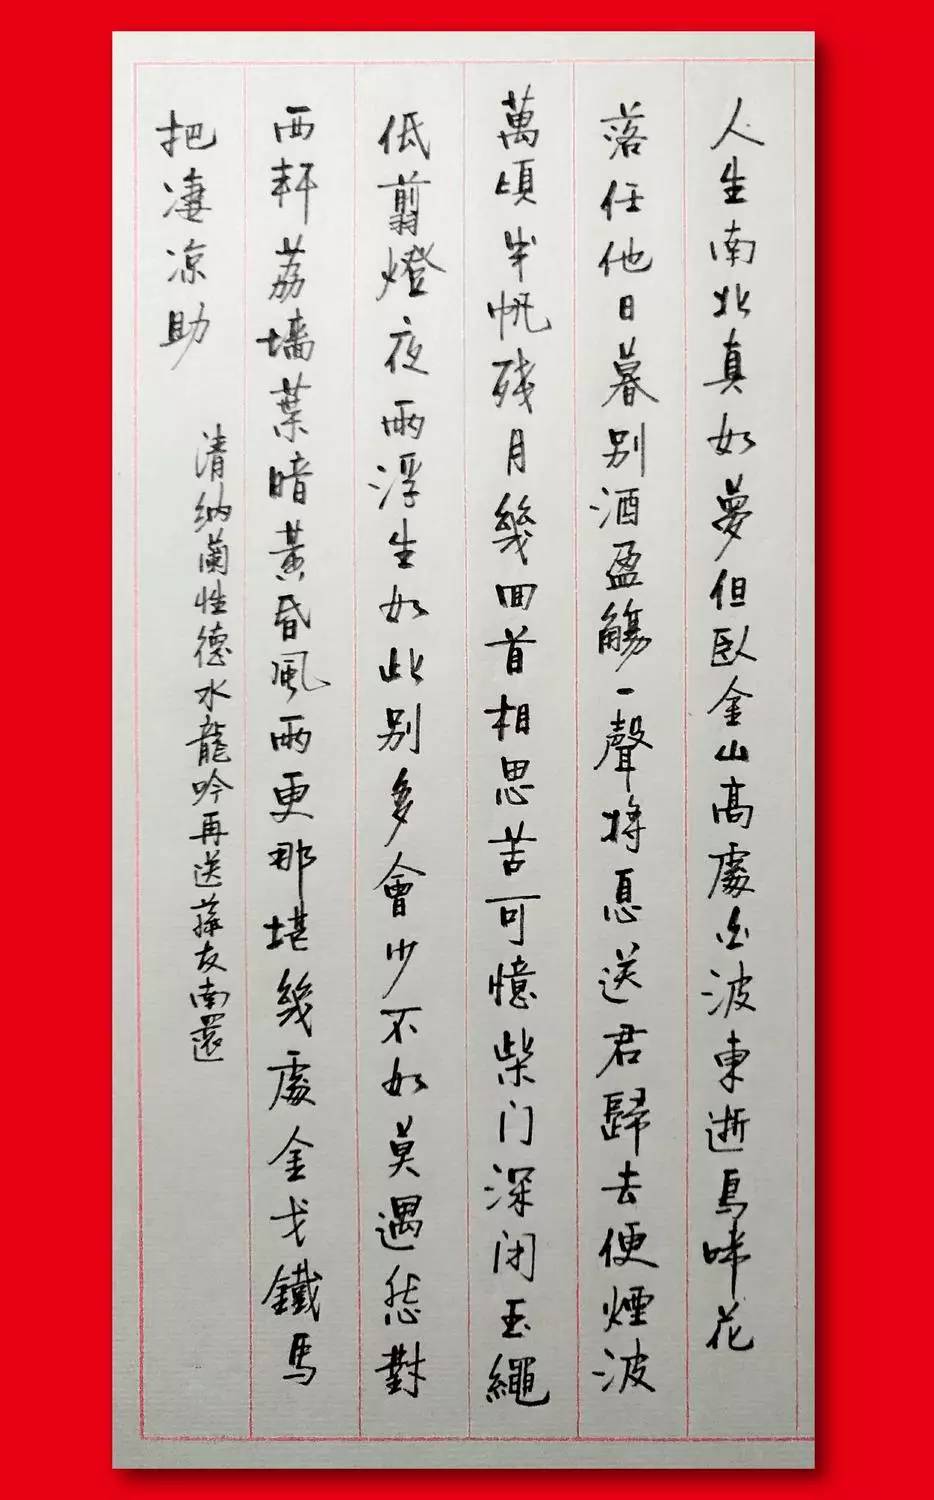 人生南北真如夢但臥金山高處白波東逝鳥啼花
落任他日暮别酒盈觴一聲將息送君歸去便煙波
萬頃半帆残月幾回首相思苦可憶柴门深闭玉繩
低翦燈夜雨浮生如此别多會少不如莫遇愁對
西軒荔墻葉暗黃昏風雨更那堪幾處金戈鐵馬
把凄凉助
清納蘭性德水龍吟再送蓀友南還